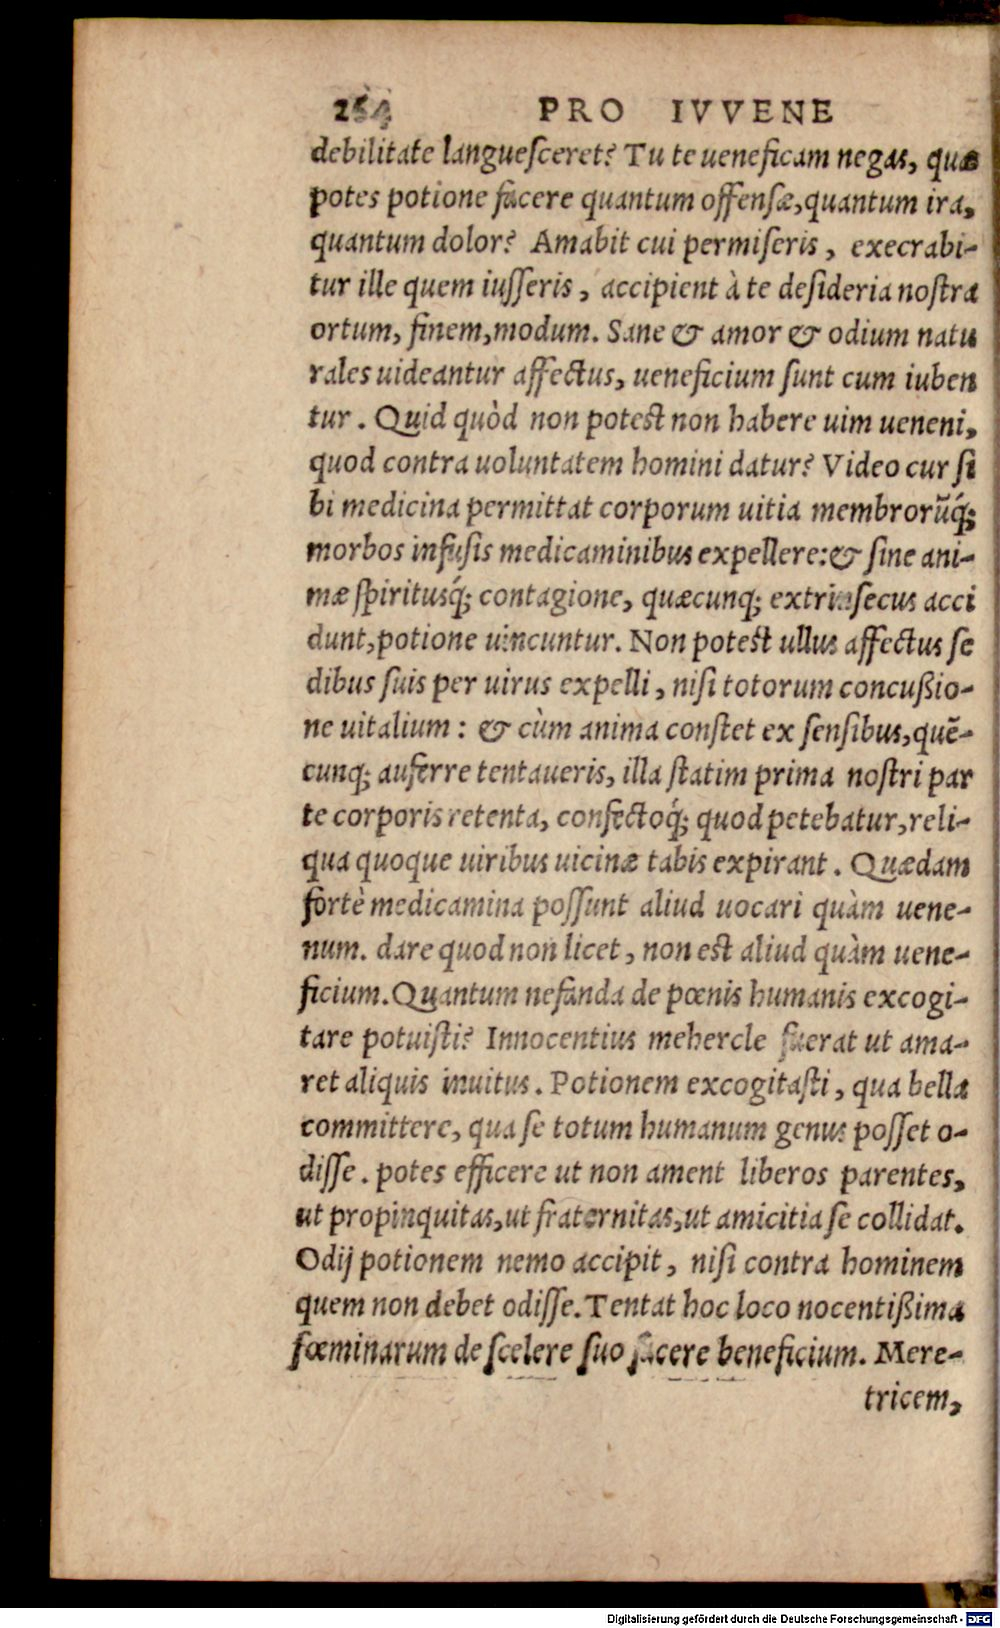 254 PRO IVVENE
debilitate langueſceret? Tu te ueneficam negas, quæ
potes potione facere quantum offenſæ, quantum ira,
quantum dolor? Amabit cui permiſeris, execrabi-
tur ille quem iuſſeris, accipient à te deſideria noſtra
ortum, finem, modum. Sane & amor & odium natu
rales uideantur affectus, ueneficium ſunt cum iuben
tur. Quid quòd non poteſt non habere uim ueneni,
quod contra uoluntatem homini datur? Video cur ſi
bi medicina permittat corporum uitia membrorũq́;
morbos infuſis medicaminibus expellere: & ſine ani-
mæ ſpiritusq́; contagione, quæcunq; extrinſecus acci
dunt, potione uincuntur. Non poteſt ullus affectus ſe
dibus ſuis per uirus expelli, niſi totorum concußio-
ne uitalium: & cùm anima conſtet ex ſenſibus, quẽ-
cunq; auferre tentaueris, illa ſtatim prima noſtri par
te corporis retenta, confectoq́; quod petebatur, reli-
qua quoque uiribus uicinæ tabis expirant. Quædam
fortè medicamina poſſunt aliud uocari quàm uene-
num. dare quod non licet, non eſt aliud quàm uene-
ficium. Quantum nefanda de pœnis humanis excogi-
tare potuiſti? Innocentius mehercle fuerat ut ama-
ret aliquis inuitus. Potionem excogitaſti, qua bella
committere, qua ſe totum humanum genus poſſet o-
diſſe. potes efficere ut non ament liberos parentes,
ut propinquitas, ut fraternitas, ut amicitia ſe collidat.
Odij potionem nemo accipit, niſi contra hominem
quem non debet odiſſe. Tentat hoc loco nocentißima
fœminarum de ſcelere ſuo facere beneficium. Mere-
tricem,
Digitalisierung gefördert durch die Deutsche Forschungsgemeinschaft - DFG